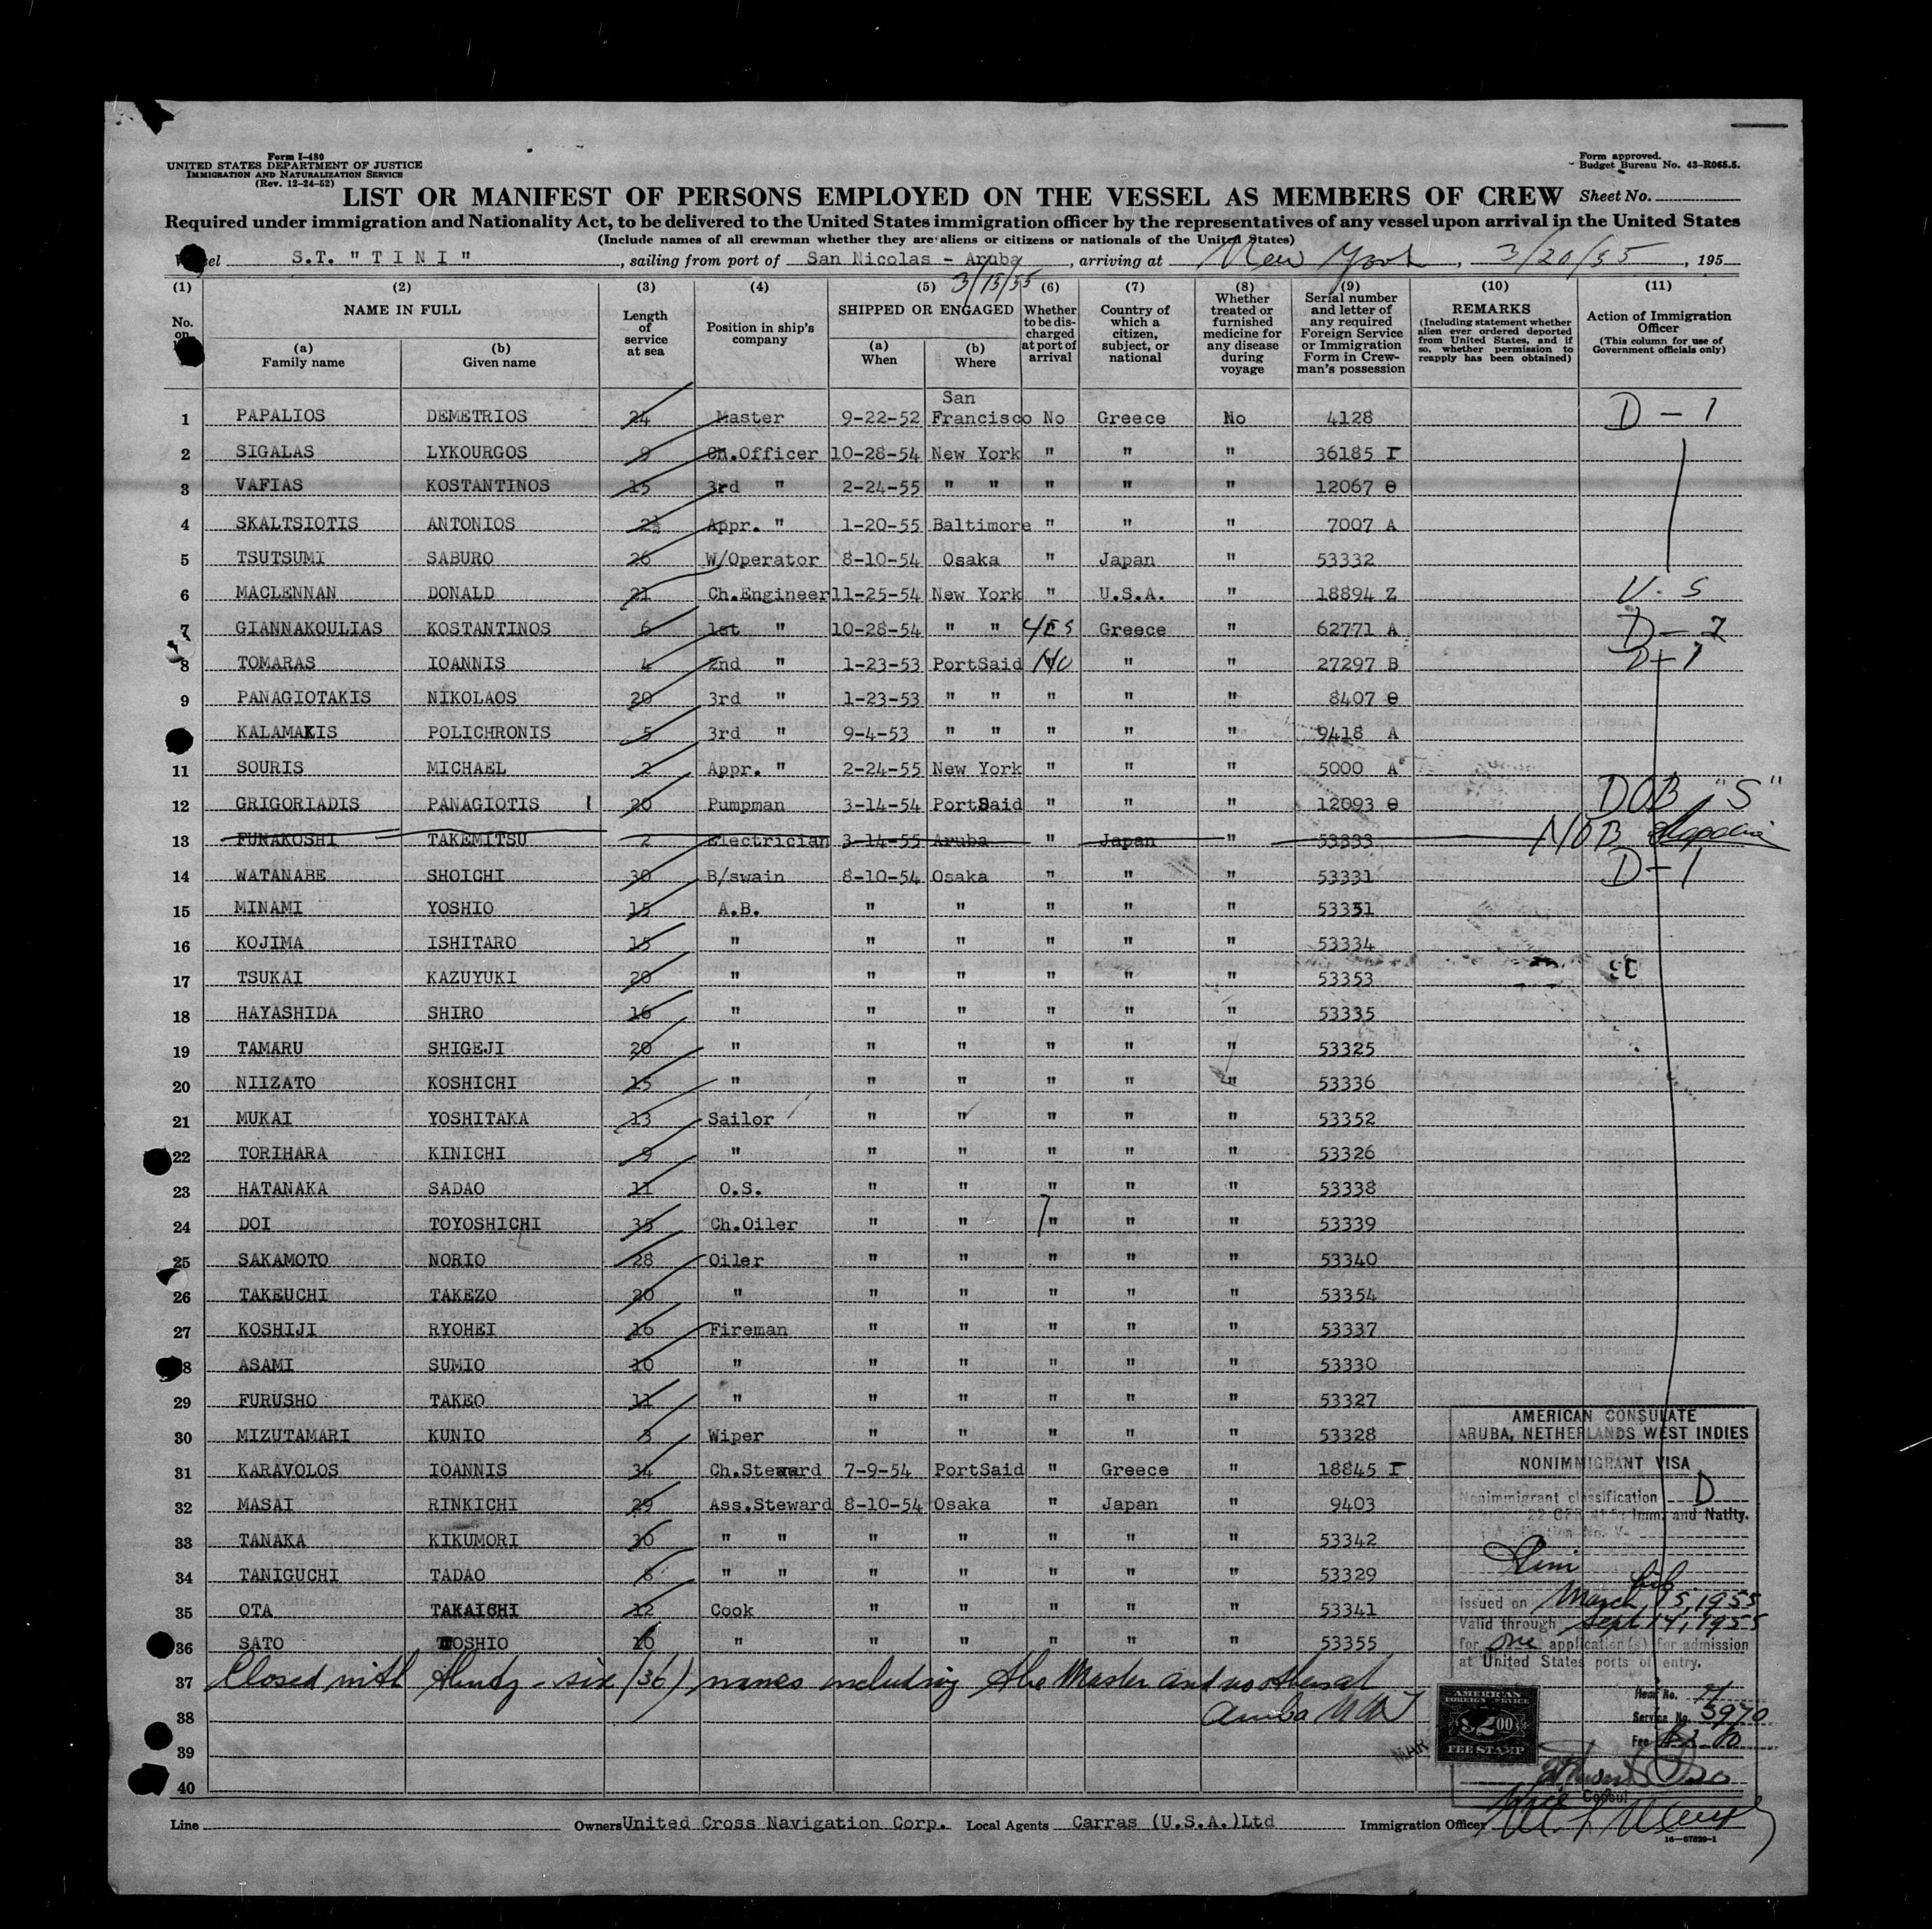 Form I-480
UNITED STATES DEPARTMENT OF JUSTICE
IMMIGRATION AND NATURALIZATION SERVICE
(Rev. 12-24-52)
Form approved.
Budget Bureau No. 43-R065.5.
LIST OR MANIFEST OF PERSONS EMPLOYED ON THE VESSEL AS MEMBERS OF CREW Sheet No.
Required under immigration and Nationality Act, to be delivered to the United States immigration officer by the representatives of any vessel upon arrival in the United States
(Include names of all crewman whether they are aliens or citizens or nationals of the United States)
S.T. "TINI", sailing from port of San Nicolas - Aruba, arriving at New York, 3/20/55, 195
3/15/55
(1) (2) (3) (4) (5) (6) (7) (8) (9) (10) (11)
No. on
NAME IN FULL
(a) Family name
(b) Given name
Length of service at sea
Position in ship's company
SHIPPED OR ENGAGED
(a) When
(b) Where
Whether to be discharged at port of arrival
Country of which a citizen, subject, or national
Whether treated or furnished medicine for any disease during voyage
Serial number and letter of any required Foreign Service or Immigration Form in Crewman's possession
REMARKS
(Including statement whether alien ever ordered deported from United States, and if so, whether permission to reapply has been obtained)
Action of Immigration Officer
(This column for use of Government officials only)
1 PAPALIOS DEMETRIOS 24 Master 9-22-52 San Francisco No Greece No 4128 D-1
2 SIGALAS LYKOURGOS 9 Ch.Officer 10-28-54 New York " " " 36185 I
3 VAFIAS KOSTANTINOS 15 3rd " 2-24-55 " " " " " 12067 θ
4 SKALTSIOTIS ANTONIOS 2½ Appr. " 1-20-55 Baltimore " " " 7007 A
5 TSUTSUMI SABURO 26 W/Operator 8-10-54 Osaka " Japan " 53332
6 MACLENNAN DONALD 21 Ch.Engineer 11-25-54 New York " U.S.A. " 18894 Z U.S
7 GIANNAKOULIAS KOSTANTINOS 6 1st " 10-28-54 " " YES Greece " 62771 A D-2
8 TOMARAS IOANNIS 4 2nd " 1-23-53 PortSaid NO " " 27297 B D-1
9 PANAGIOTAKIS NIKOLAOS 20 3rd " 1-23-53 " " " " " 8407 θ
KALAMAKIS POLICHRONIS 5 3rd " 9-4-53 " " " " " 9418 A
11 SOURIS MICHAEL 2 Appr. " 2-24-55 New York " " " 5000 A
12 GRIGORIADIS PANAGIOTIS 20 Pumpman 3-14-54 PortSaid " " " 12093 θ DOB "S"
13 FUNAKOSHI TAKEMITSU 2 Electrician 3-14-55 Aruba " Japan " 53333 NOB
14 WATANABE SHOICHI 30 B/swain 8-10-54 Osaka " " " 53331 D-1
15 MINAMI YOSHIO 15 A.B. " " " " " 53351
16 KOJIMA ISHITARO 15 " " " " " " 53334
17 TSUKAI KAZUYUKI 20 " " " " " " 53353
18 HAYASHIDA SHIRO 16 " " " " " " 53335
19 TAMARU SHIGEJI 20 " " " " " " 53325
20 NIIZATO KOSHICHI 15 " " " " " " 53336
21 MUKAI YOSHITAKA 13 Sailor " " " " " 53352
22 TORIHARA KINICHI 9 " " " " " " 53326
23 HATANAKA SADAO 11 O.S. " " " " " 53338
24 DOI TOYOSHICHI 35 Ch.Oiler " " " " " 53339
25 SAKAMOTO NORIO 28 Oiler " " " " " 53340
26 TAKEUCHI TAKEZO 20 " " " " " " 53354
27 KOSHIJI RYOHEI 16 Fireman " " " " " 53337
28 ASAMI SUMIO 10 " " " " " " 53330
29 FURUSHO TAKEO 11 " " " " " " 53327
30 MIZUTAMARI KUNIO 3 Wiper " " " " " 53328
31 KARAVOLOS IOANNIS 34 Ch.Steward 7-9-54 PortSaid " Greece " 18845 I
32 MASAI RINKICHI 29 Ass.Steward 8-10-54 Osaka " Japan " 9403
33 TANAKA KIKUMORI 30 " " " " " " " 53342
34 TANIGUCHI TADAO 8 " " " " " " " 53329
35 OTA TAKAICHI 12 Cook " " " " " 53341
36 SATO TOSHIO 10 " " " " " " 53355
37 Closed with thirty-six (36) names including the Master and no others at
38 Aruba NWI
39
40
AMERICAN CONSULATE
ARUBA, NETHERLANDS WEST INDIES
NONIMMIGRANT VISA
Nonimmigrant classification D
22 CFR 41.5: Imm. and Natlty.
Application No. V-
Tini
Issued on March 15, 1955
Valid through Sept 14, 1955
for one application(s) for admission
at United States ports of entry.
AMERICAN
FOREIGN SERVICE
$2.00
FEE STAMP
MAR
Item No. 4
Service No. 3970
Fee
Vice Consul
Line
Owners United Cross Navigation Corp. Local Agents Carras (U.S.A.)Ltd Immigration Officer
16-67829-1